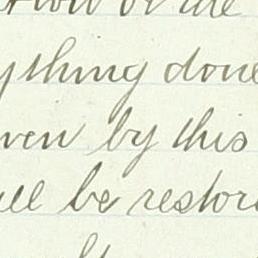 ything done
ven by this
ill be restor